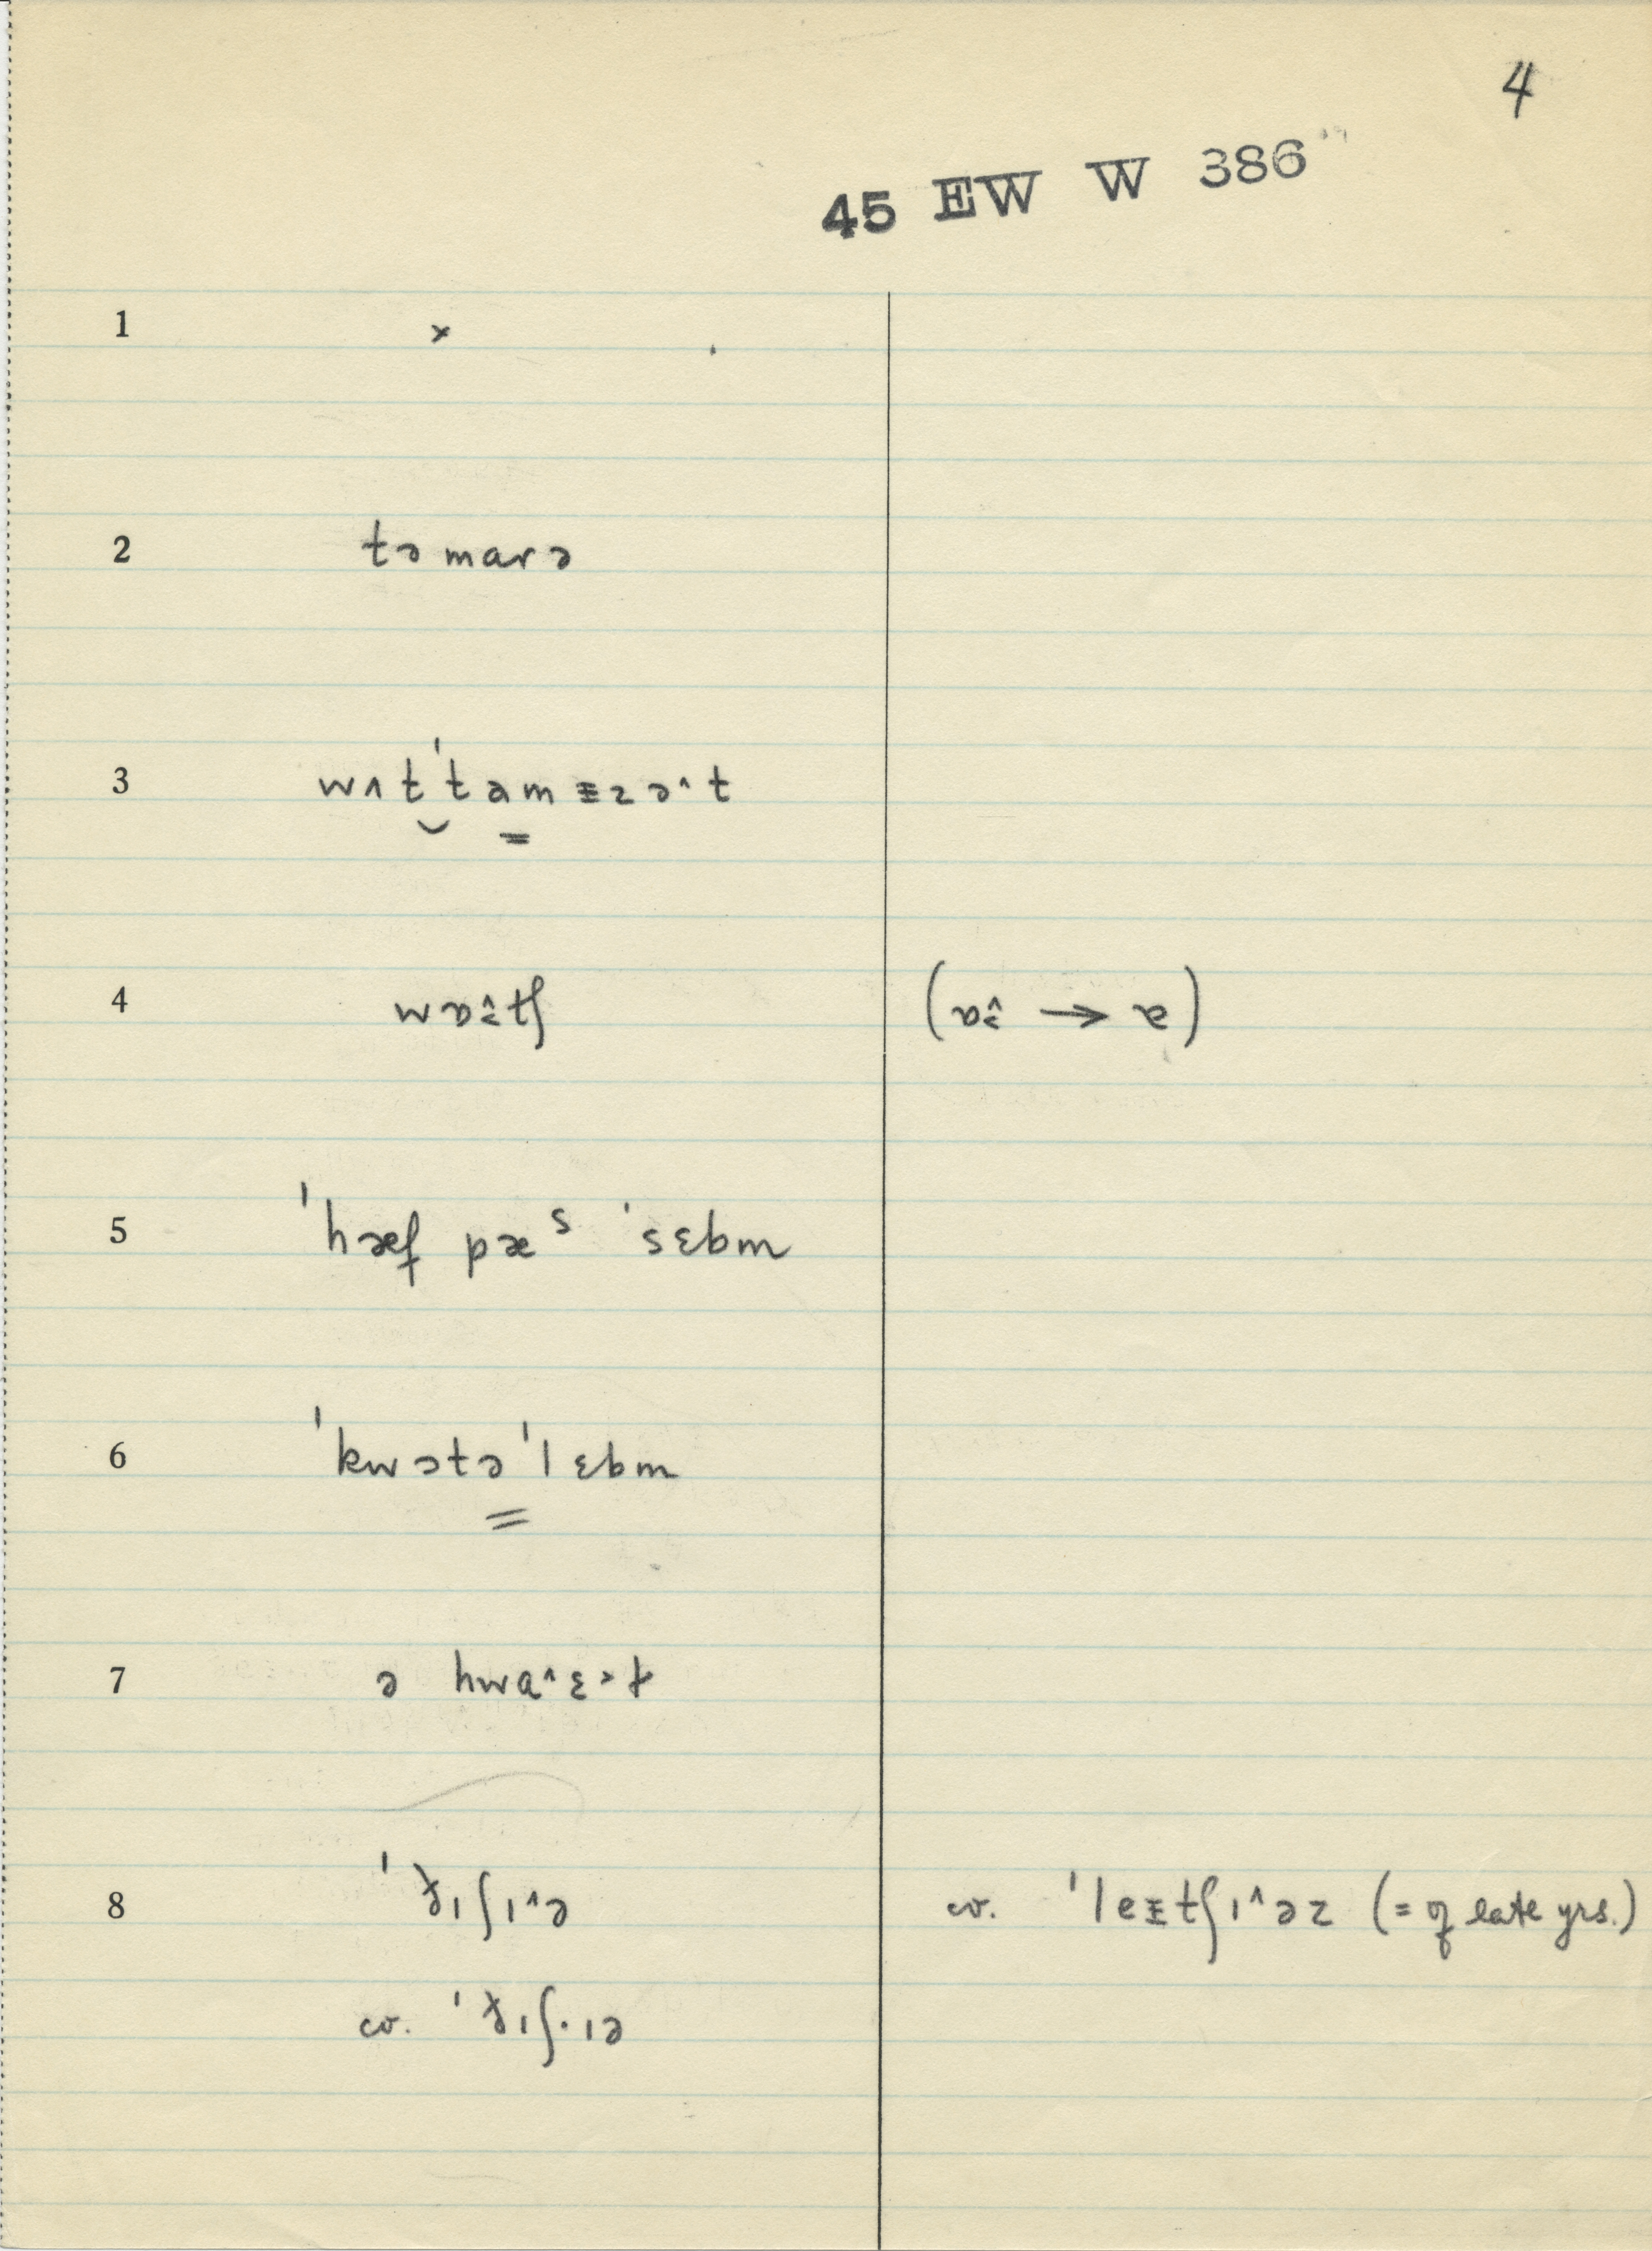 4
45 EW W 386
1 ×
2 tə marə
3 wʌt ˈtam ɪz ə^ t
4 wɒɛ̂tʃ (ɒɛ̂ → ɐ)
5 ˈhæf pæˢ ˈsɛbm
6 ˈkwɔtə ˈlɛbm
7 ə hwa^ɛ>t
8 ˈjɪʃɪ^ə cv. ˈleɪtʃɪ^əz (= of late yrs.)
cv. ˈjɪʃ·ɪə